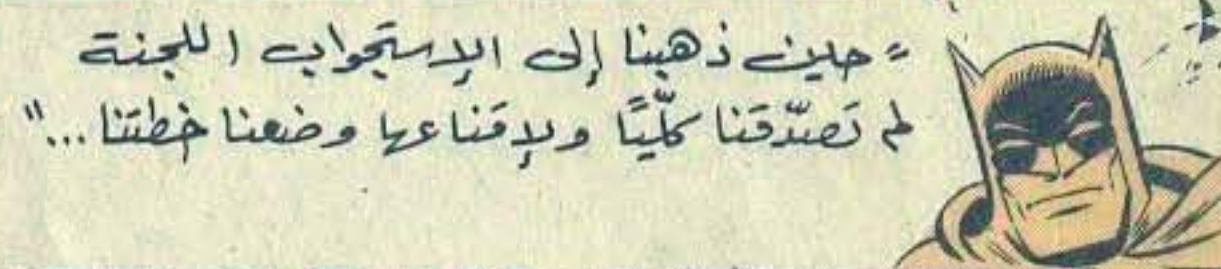 "حين ذهبنا إلى الإستجواب اللجنة
لم تَصدّقنا كلّيًا ولإقناعها وضعنا خطتنا..."